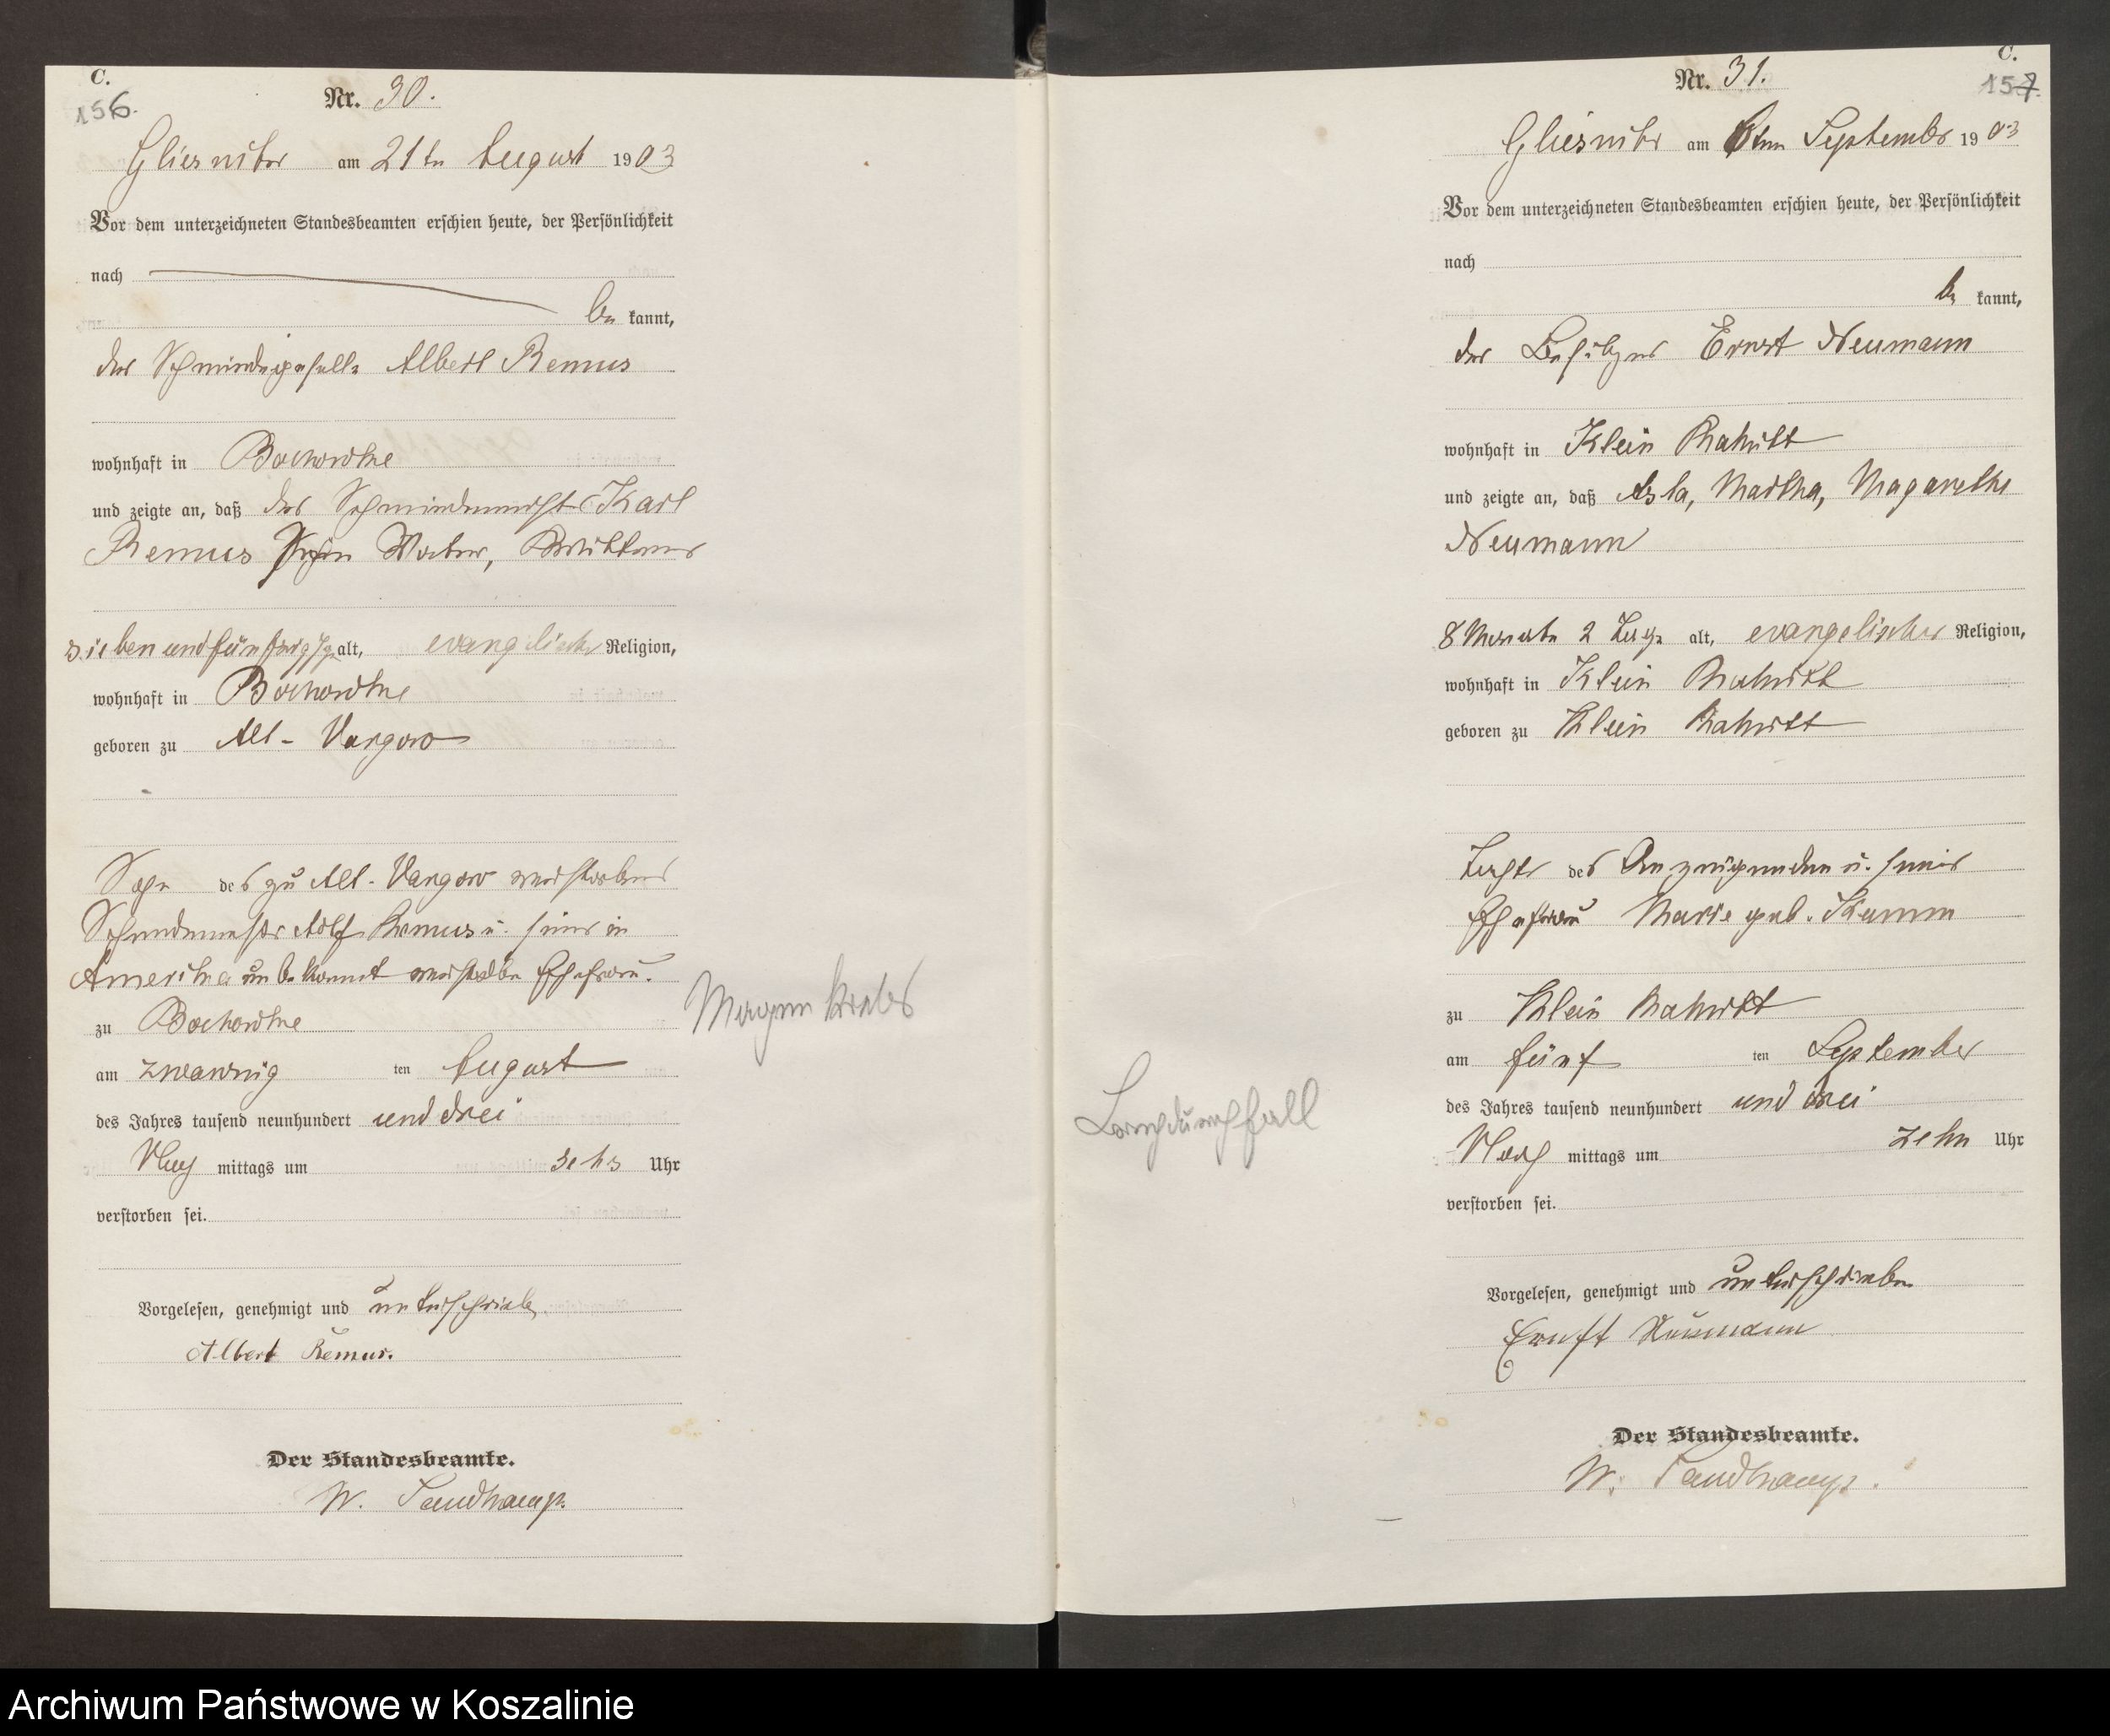 C.
156.
Nr. 30.
Gliesnitz am 21ten August 1903
Vor dem unterzeichneten Standesbeamten erschien heute, der Persönlichkeit
nach
be kannt,
der Schmiedegeselle Albert Remus
wohnhaft in Bochowke
und zeigte an, daß der Schmiedemeister Karl
Remus sein Vater, Wittwer
sieben und fünfzig J. alt, evangelischer Religion,
wohnhaft in Bochowke
geboren zu Alt-Vargow
Sohn des zu Alt-Vargow verstorbenen
Schmiedemeister Adolf Remus u. seiner in
Amerika unbekannt verstorben Ehefrau.
zu Bochowke
am zwanzig ten August
des Jahres tausend neunhundert und drei
Nach mittags um sechs Uhr
verstorben sei.
Vorgelesen, genehmigt und unterschrieben
Albert Remus.
Der Standesbeamte.
W. Sandkamp.
Magen Krebs
C.
157.
Nr. 31.
Gliesnitz am 6ten September 1903
Vor dem unterzeichneten Standesbeamten erschien heute, der Persönlichkeit
nach
be kannt,
der Besitzer Ernst Neumann
wohnhaft in Klein Rakitt
und zeigte an, daß Martha, Magarethe
Neumann
8 Monate 2 Tage alt, evangelischer Religion,
wohnhaft in Klein Rakitt
geboren zu Klein Rakitt
Tochter des Anzeigenden u. seiner
Ehefrau Marie geb. Kamin
zu Klein Rakitt
am fünf ten September
des Jahres tausend neunhundert und drei
Nach mittags um zehn Uhr
verstorben sei.
Vorgelesen, genehmigt und unterschrieben
Ernst Neumann
Der Standesbeamte.
W. Sandkamp.
Brechdurchfall
Archiwum Państwowe w Koszalinie